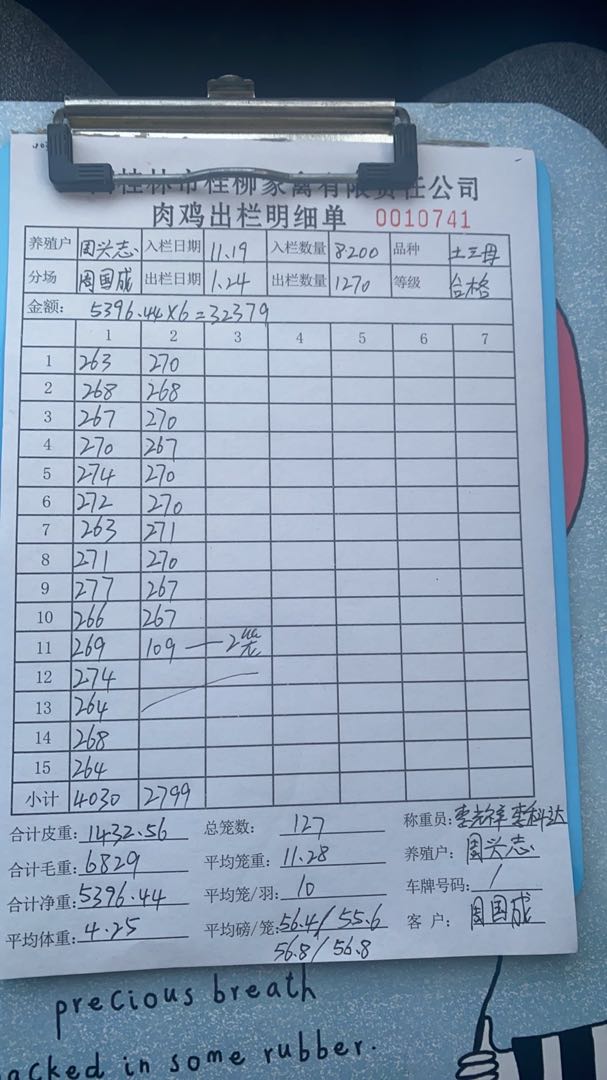 桂林市桂柳家禽有限责任公司
肉鸡出栏明细单 0010741
养殖户 周兴志 入栏日期 11.19 入栏数量 8200 品种 土三母
分场 周国成 出栏日期 1.24 出栏数量 1270 等级 合格
金额: 5396.44×6=32379
1 2 3 4 5 6 7
1 263 270
2 268 268
3 267 270
4 270 267
5 274 270
6 272 270
7 263 271
8 271 270
9 277 267
10 266 267
11 269 109 — 2笼
12 274
13 264
14 268
15 264
小计 4030 2799
合计皮重: 1432.56 总笼数: 127 称重员: 李科达
合计毛重: 6829 平均笼重: 11.28 养殖户: 周兴志
合计净重: 5396.44 平均笼/羽: 10 车牌号码: /
平均体重: 4.25 平均磅/笼: 56.4/55.6 客户: 周国成
56.8/56.8
precious breath
acked in some rubber.